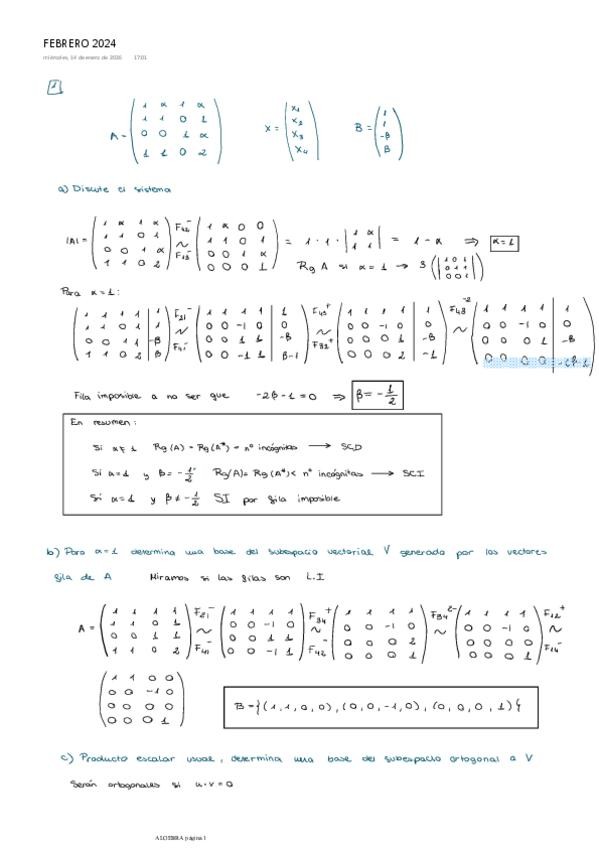 FEBRERO 2024
miércoles, 14 de enero de 2026 17:01
1
A = ( 1 α 1 α
1 1 0 1
0 0 1 α
1 1 0 2 )
X = ( x₁
x₂
x₃
x₄ )
B = ( 1
1
-β
β )
a) Discute el sistema
|A| = ( 1 α 1 α
1 1 0 1
0 0 1 α
1 1 0 2 )
~
( 1 α 0 0
1 1 0 1
0 0 1 α
0 0 0 1 )
= 1 · 1 · | 1 α
1 1 | = 1 - α ⇒ α = 1
Rg A si α = 1 → 3 ( | 1 0 1
0 1 1
0 0 1 | )
Para α = 1 :
( 1 1 1 1 | 1
1 1 0 1 | 1
0 0 1 1 | -β
1 1 0 2 | β )
F₂₁⁻
~
F₄₁⁻
( 1 1 1 1 | 1
0 0 -1 0 | 0
0 0 1 1 | -β
0 0 -1 1 | β-1 )
~
( 1 1 1 1 | 1
0 0 -1 0 | 0
0 0 1 1 | -β
0 0 0 2 | -1 )
F₄₃⁻²
~
( 1 1 1 1 | 1
0 0 -1 0 | 0
0 0 1 | -β
0 0 0 0 | -2β-1 )
Fila imposible a no ser que -2β - 1 = 0 ⇒ β = - 1/2
En resumen:
Si α ≠ 1 Rg(A) = Rg(A*) = nº incógnitas → SCD
Si α = 1 y β = - 1/2 Rg(A) = Rg(A*) < nº incógnitas → SCI
Si α = 1 y β ≠ - 1/2 SI por fila imposible
b) Para α = 1 determina una base del subespacio vectorial V generado por los vectores
fila de A Miramos si las filas son L.I
A = ( 1 1 1 1
1 1 0 1
0 0 1 1
1 1 0 2 )
F₂₁⁻
~
F₄₁⁻
( 1 1 1 1
0 0 -1 0
0 0 1 1
0 0 -1 1 )
F₃₄⁺
~
F₄₂⁻
( 1 1 1 1
0 0 -1 0
0 0 0 2
0 0 0 1 )
F₃₄²⁻
~
( 1 1 1 1
0 0 -1 0
0 0 0 0
0 0 0 1 )
F₁₂⁺
~
F₁₄⁻
( 1 1 0 0
0 0 -1 0
0 0 0 0
0 0 0 1 )
B = { (1, 1, 0, 0), (0, 0, -1, 0), (0, 0, 0, 1) }
c) Producto escalar usual, determina una base del subespacio ortogonal a V
Serán ortogonales si u · v = 0
ALGEBRA página 1